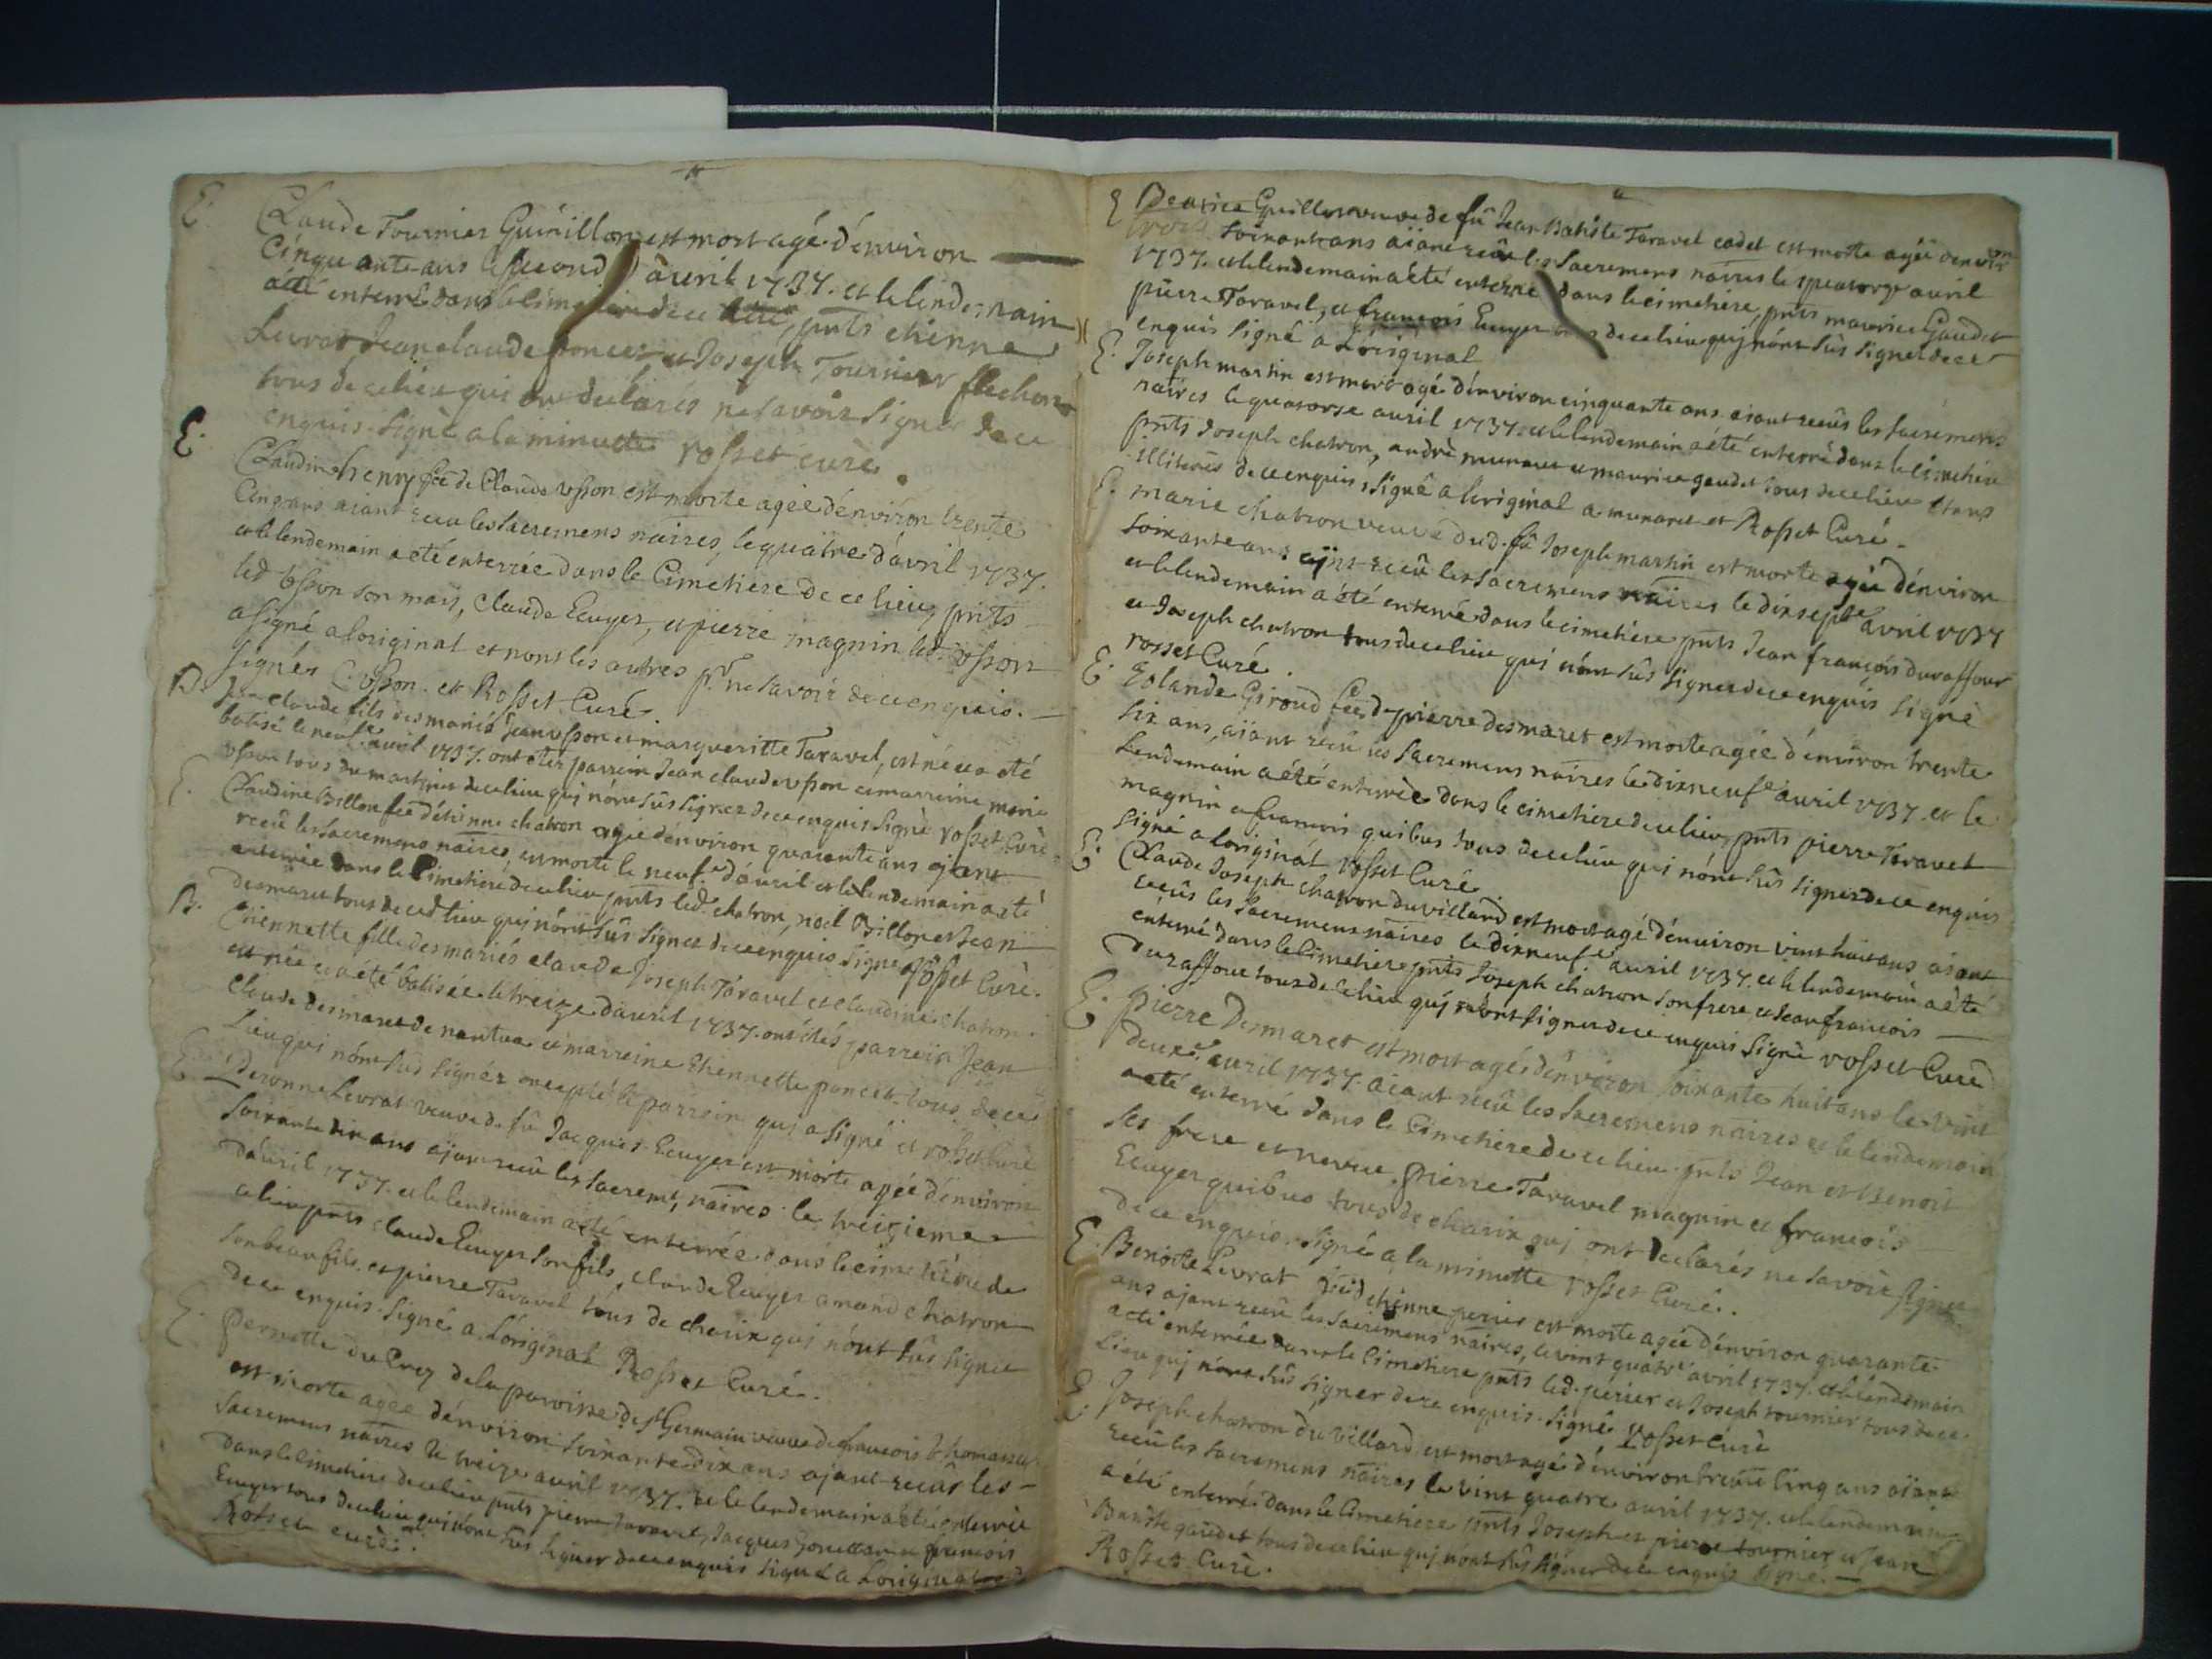 E. Claude Tournier Guinillon est mort agé d'environ
Cinquante ans le second avril 1737. et le lendemain
a été enterré dans le cimetiere de ce lieu, pnts etienne
Levrat Jean claude poncet et Joseph Tournier flechon
tous de ce lieu qui ont declarés ne savoir signer de ce
enquis signé a la minutte rosset curé.
E. Claudine henry fee de Claude Usson est morte agée d'environ trente
Cinq ans aiant receu les sacremens naires, le quatre d'avril 1737.
et le lendemain a été enterrée dans le Cimetiere de ce lieu, pnts
led Usson son mary, Claude Ecuyer, et pierre magnin led. Usson
a signé a l'original et non les autres pr ne savoir de ce enquis.
signés C. Usson. et Rosset Curé.
B. Jean claude fils des mariés Jean Usson et margueritte Taravel, est né et a été
batisé le neufe avril 1737. ont etés parrein Jean claude Usson et marreine marie
Usson tous du martinet de ce lieu quj n'ont sûs signer de ce enquis signé rosset Curé.
E. Claudine Billon fee d'étienne chatron agée d'environ quarante ans ajant
receu les sacremens naires, est morte le neufe d'avril et le lendemain a eté
enterrée dans le Cimetiere de ce lieu pnts led. chatron, noel Billon et Jean
desmaret tous de ced lieu quj n'ont sûs signer de ce enquis signé Rosset Curé.
B. Etiennette fille des mariés claude Joseph Taravel et claudine chatron
est née et a été batisée le treize d'avril 1737. ont étés parrein Jean
claude desmaret de nantua et marreine Etiennette poncet tous de ce
Lieu qui n'ont sus signer excepté le parrein quj a signé et rosset Curé
E. Lderonne Levrat veuve de fû Jacques Ecuyer est morte agée d'environ
soixante dix ans ajant receû les sacremt, naires le treizieme
d'avril 1737. et le lendemain a été enterrée dans le cimetiere de
ce lieu pnts claude Ecuyer son fils, claude Ecuyer amand chatron
son beaufils, et pierre Taravel tous de charix quj n'ont sûs signer
de ce enquis signé a L'original Rosset Curé.
E. Pernette du Crez de la paroisse de st Germain veuve de francois thomasset
est morte agée d'environ soixante dix ans ajant receus les
sacremens naires le treize avril 1737. et le lendemain a été enterrée
dans le cimetiere de ce lieu pnts pierre Taravel, Jacques et francois
Ecuyer tous de ce lieu quj n'ont sus signer de ce enquis signé a L'original
Rosset curé.
E Beatrice Guillot veuve de fû Jean Batiste Taravel cadet est morte agée denviron
soixante ans aiant receu les sacremens naires le quatorze avril
1737. et le lendemain a été enterrée dans le cimetiere, pnts maurice Gaudet
pierre Taravel, et francois Ecuyer tous de ce lieu quj n'ont sûs signer de ce
enquis signé a L'original
E. Joseph martin est mort agé d'environ cinquante ans aiant receûs les sacremens
naires le quatorse avril 1737. et le lendemain a été enterré dans le cimetiere
pnts Joseph chatron, andré munaret et maurice gaudet tous de ce lieu etans
illiterés de ce enquis, signé a l'original a munaret et Rosset Curé.
E. marie chatron veuve dud. fû Joseph martin est morte agée d'environ
soixante ans ajant receû les sacremens naires le dixsepte avril 1737
et le lendemain a été enterrée dans le cimetiere pnts Jean françois duraffour
et Joseph chatron tous de ce lieu qui n'ont sûs signer de ce enquis signé
rosset Curé.
E. Yolande Giroud fee de pierre desmaret est morte agée d'environ trente
six ans, aiant receû les sacremens naires le dixneufe avril 1737. et le
Lendemain a été enterrée dans le cimetiere de ce lieu, pnts pierre Taravel
magnin et francois quibus tous de ce lieu qui n'ont sûs signer de ce enquis
signé a l'original Rosset Curé.
E. Claude Joseph chatron du villard est mort agé d'environ vint huit ans aiant
receûs les sacremens naires le dixneufe avril 1737. et le lendemain a été
enterré dans le Cimetiere pnts Joseph chatron son frere et Jean francois
duraffour tous de ce lieu quj n'ont signer de ce enquis signé rosset Curé
E. Pierre Desmaret est mort agés d'environ soixante huit ans le vint
deuxe avril 1737. aiant receû les sacremens naires et le lendemain
a eté enterré dans le Cimetiere de ce lieu pnts Jean et Benoit
ses frere et neveu, pierre Taravel magnin et francois
Ecuyer quibus tous de charix quj ont declarés ne savoir signer
de ce enquis. signé a la minutte rosset Curé.
E. Benoite Levrat fee d'etienne perier est morte agée d'environ quarante
ans ajant receû les sacremens naires, le vint quatre avril 1737. et le lendemain
a eté enterrée dans le Cimetiere pnts led. perier et Joseph tournier tous de ce
Lieu quj n'ont sûs signer de ce enquis. signé rosset Curé
E. Joseph chatron du villard est mort agé d'environ trente Cinq ans aiant
receû les sacremens naires le vint quatre avril 1737. et le lendemain
a été enterré dans le Cimetiere pnts Joseph et pierre tournier et Jean
Batiste gaudet tous de ce lieu quj n'ont sûs signer de ce enquis signé.
Rosset Curé.